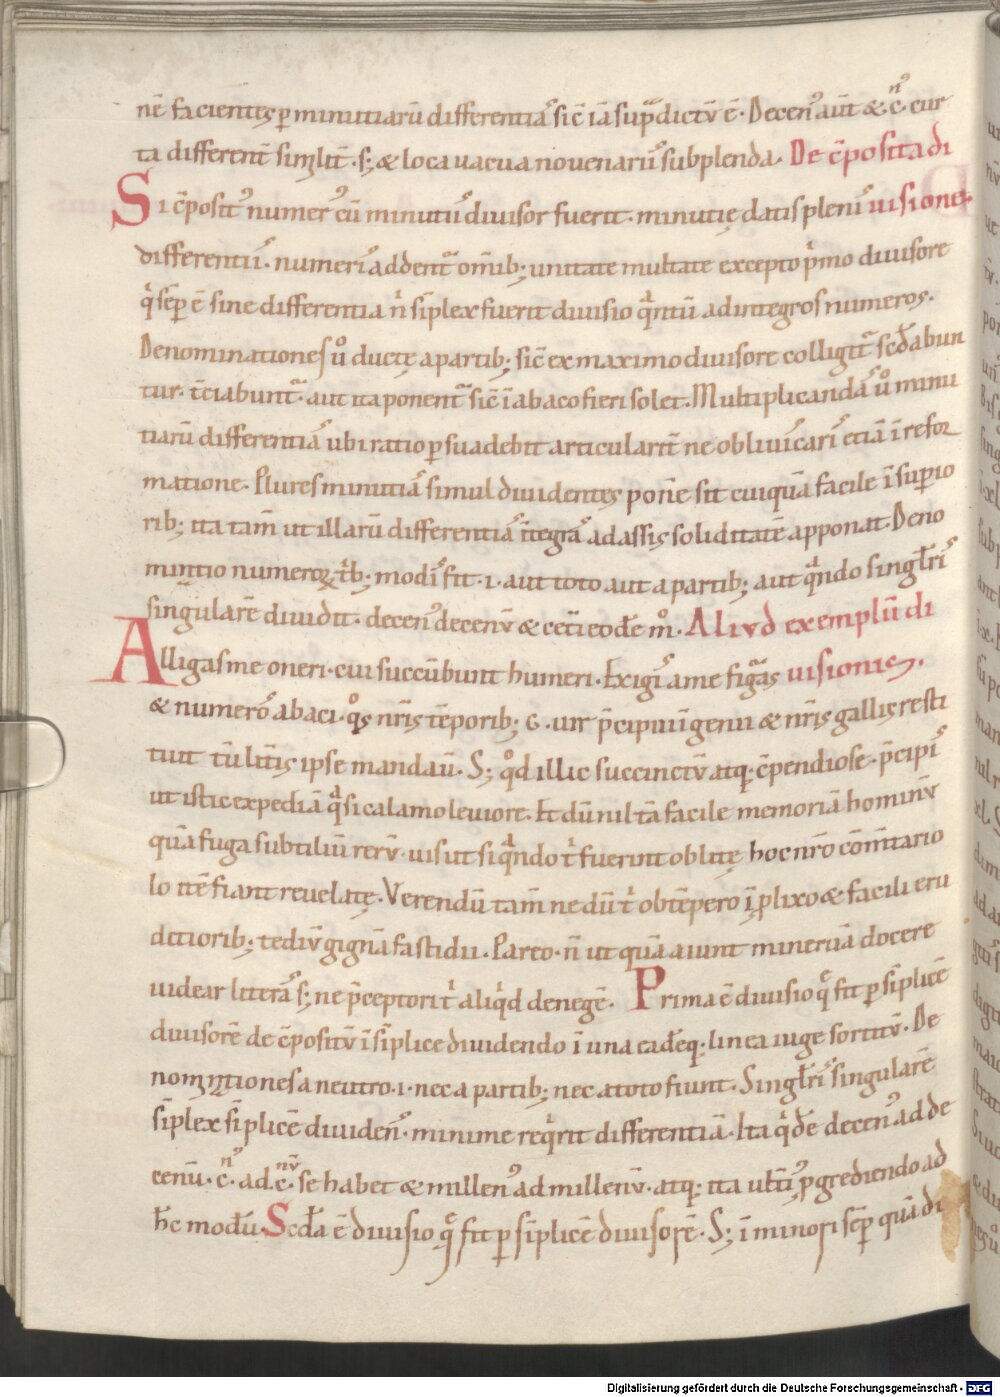 nē facientes p minutiarū differentiaˢ sic̄ iā sup̄dictū ē. Decen⁹ aūt & c̄ⁿ⁹. cur
ta different̄ simlit̄. s; & loca vacua novenariuˢ subplenda. De c̄posita di
Si c̄posit⁹ numer⁹ cū minutuˢ divisor fuerit. minutię datis plenuˢ visione.
differentiis. numeriˢ addent᷑ om̄ib; unitate multate excepto p̄mo divisore
q̇ sēp ē sine differentia n̊ sīplex fuerit divisio q̊ntū ad integros numeros.
Denominationes ů ductę a partib; sic̄ ex maximo divisore colligit᷑ scd̄abun
tur. t̄ciabunt᷑. aut ita ponent᷑ sic̄ ī abaco fieri solet. Multiplicandaˢ ů minu
tiarū differentiaˢ ubi ratio p suadebit articularit̄ ne obliviˢcariˢ etiā ī refor
matione. Plures minutiaˢ simul dividentes pone sit cuiquā facile ī supio
rib; ita tam̄ ut illarū differentiaˢ ītegraˢ ad assis soliditatē apponat. Deno
mintio numeroꝝ trib; modiˢ fit. i. aut toto aut a partib; aut q̊ndo singlr̄iˢ
singularē dividit. decen⁹ decenū & cet̄i eodē m̊. Alivd exemplū di
Alligas me oneri. cui succūbunt humeri. Exigiˢ a me figᷓas visionis.
& numeroˢ abaci. q̊s nr̄is tēporib; G. vir p̄cipuuˢ īgenii & nr̄is gallis resti
tuit tū litt̄is ipse mandaū. S; q̊d illic succinctū atq; c̄pendiose. p̄cipiˢ
ut istic expediā q̊si calamo leviore. Et dū nil tā facile memoriā hominū
quā fuga subtiliū rerū. uis ut si q̊ndo t̊ fuerint oblitę hoc nr̄o cōm̄tario
lo itē fiant revelatę. Verendū tam̄ ne dū t̊ obtēpero īplixo & facili eru
ditiorib; tediū gignā fastidii. Pareo. n̄ ut quā aiunt minervā docere
videar literaˢ s; ne p̄ceptori t̊ aliq̊d denegē. Prima ē divisio q̨ fit p sīplicē
divisorē de c̄positū ī sīplice dividendo ī una eadēq; linea iuge sortitū. De
nomintiones a neutro. i. nec a partib; nec a toto fiunt. Singlr̄iˢ singularē
sīplex sīplicē dividenˢ. minime req̊rit differentiā. Ita q̊dē decen⁹ ad de
cenū. c̄ⁿ⁹. ad. c̄ⁿū. se habet & millen⁹ ad millenū. atq; ita ult̄iˢ pgrediendo ad
hc̄ modū. Scd̄a ē divisio q̨ fit p sīplicē divisorē. S; ī minori sēp quā di
Digitalisierung gefördert durch die Deutsche Forschungsgemeinschaft - DFG